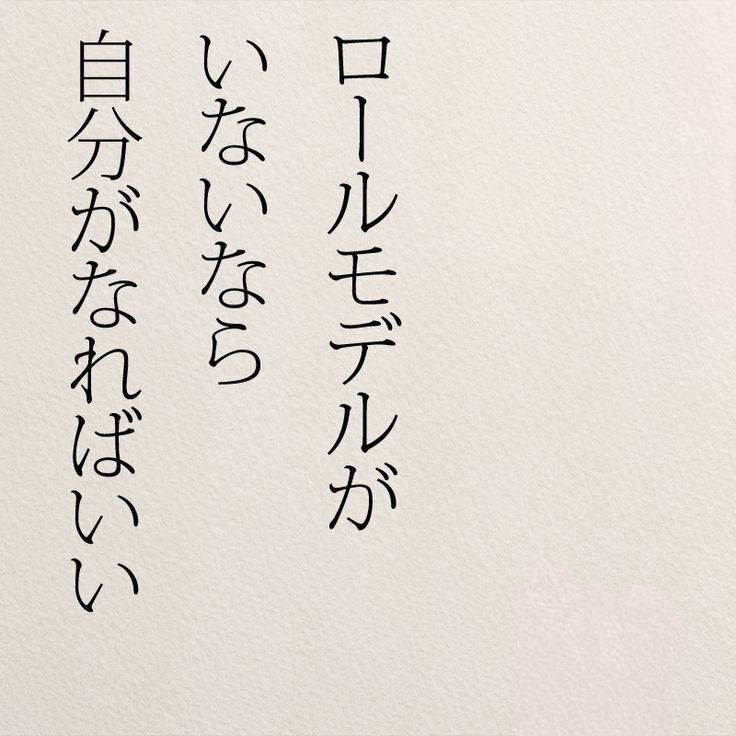 ロールモデルが
いないなら
自分がなればいい